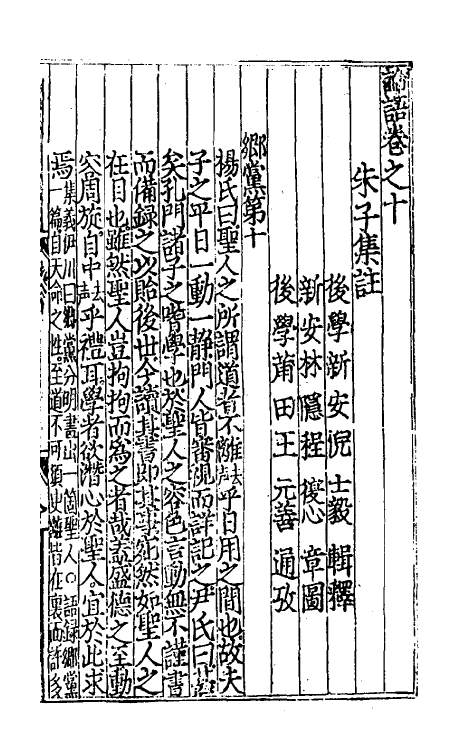 論語卷之十
朱子集註
後學新安倪士毅輯釋
新安林隱程復心章圖
後學莆田王元善通攷
鄉黨第十
楊氏曰聖人之所謂道者不離去聲乎日用之間也故夫
子之平日一動一靜門人皆審視而詳記之尹氏曰甚
矣孔門諸子之嗜學也於聖人之容色言動無不謹書
而備錄之以貽後世今讀其書即其事宛然如聖人之
在目也雖然聖人豈拘拘而為之者哉蓋盛德之至動
容周旋自中去聲乎禮耳學者欲潛心於聖人宜於此求
焉集義伊川曰鄉黨分明畫出一箇聖人○語錄鄉黨
一篇自天命之性至道不可須臾離皆在裏面許多